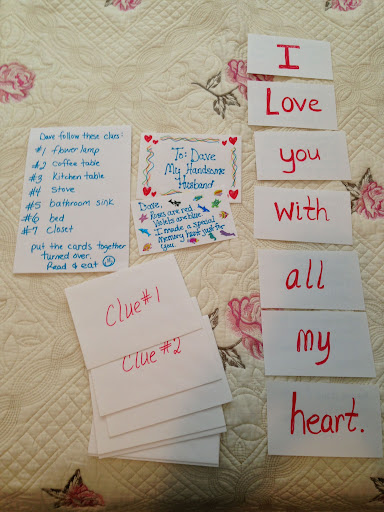 Dave follow these clues:
#1 flower lamp
#2 Coffee table
#3 Kitchen table
#4 Stove
#5 bathroom sink
#6 bed
#7 Closet
put the cards together
turned over.
Read & eat
To: Dave
My Handsome
Husband
Dave,
Roses are red
Violets are blue
I made a special
Memory Hunt just for
You.
Clue#1
Clue#2
I
Love
you
with
all
my
heart.